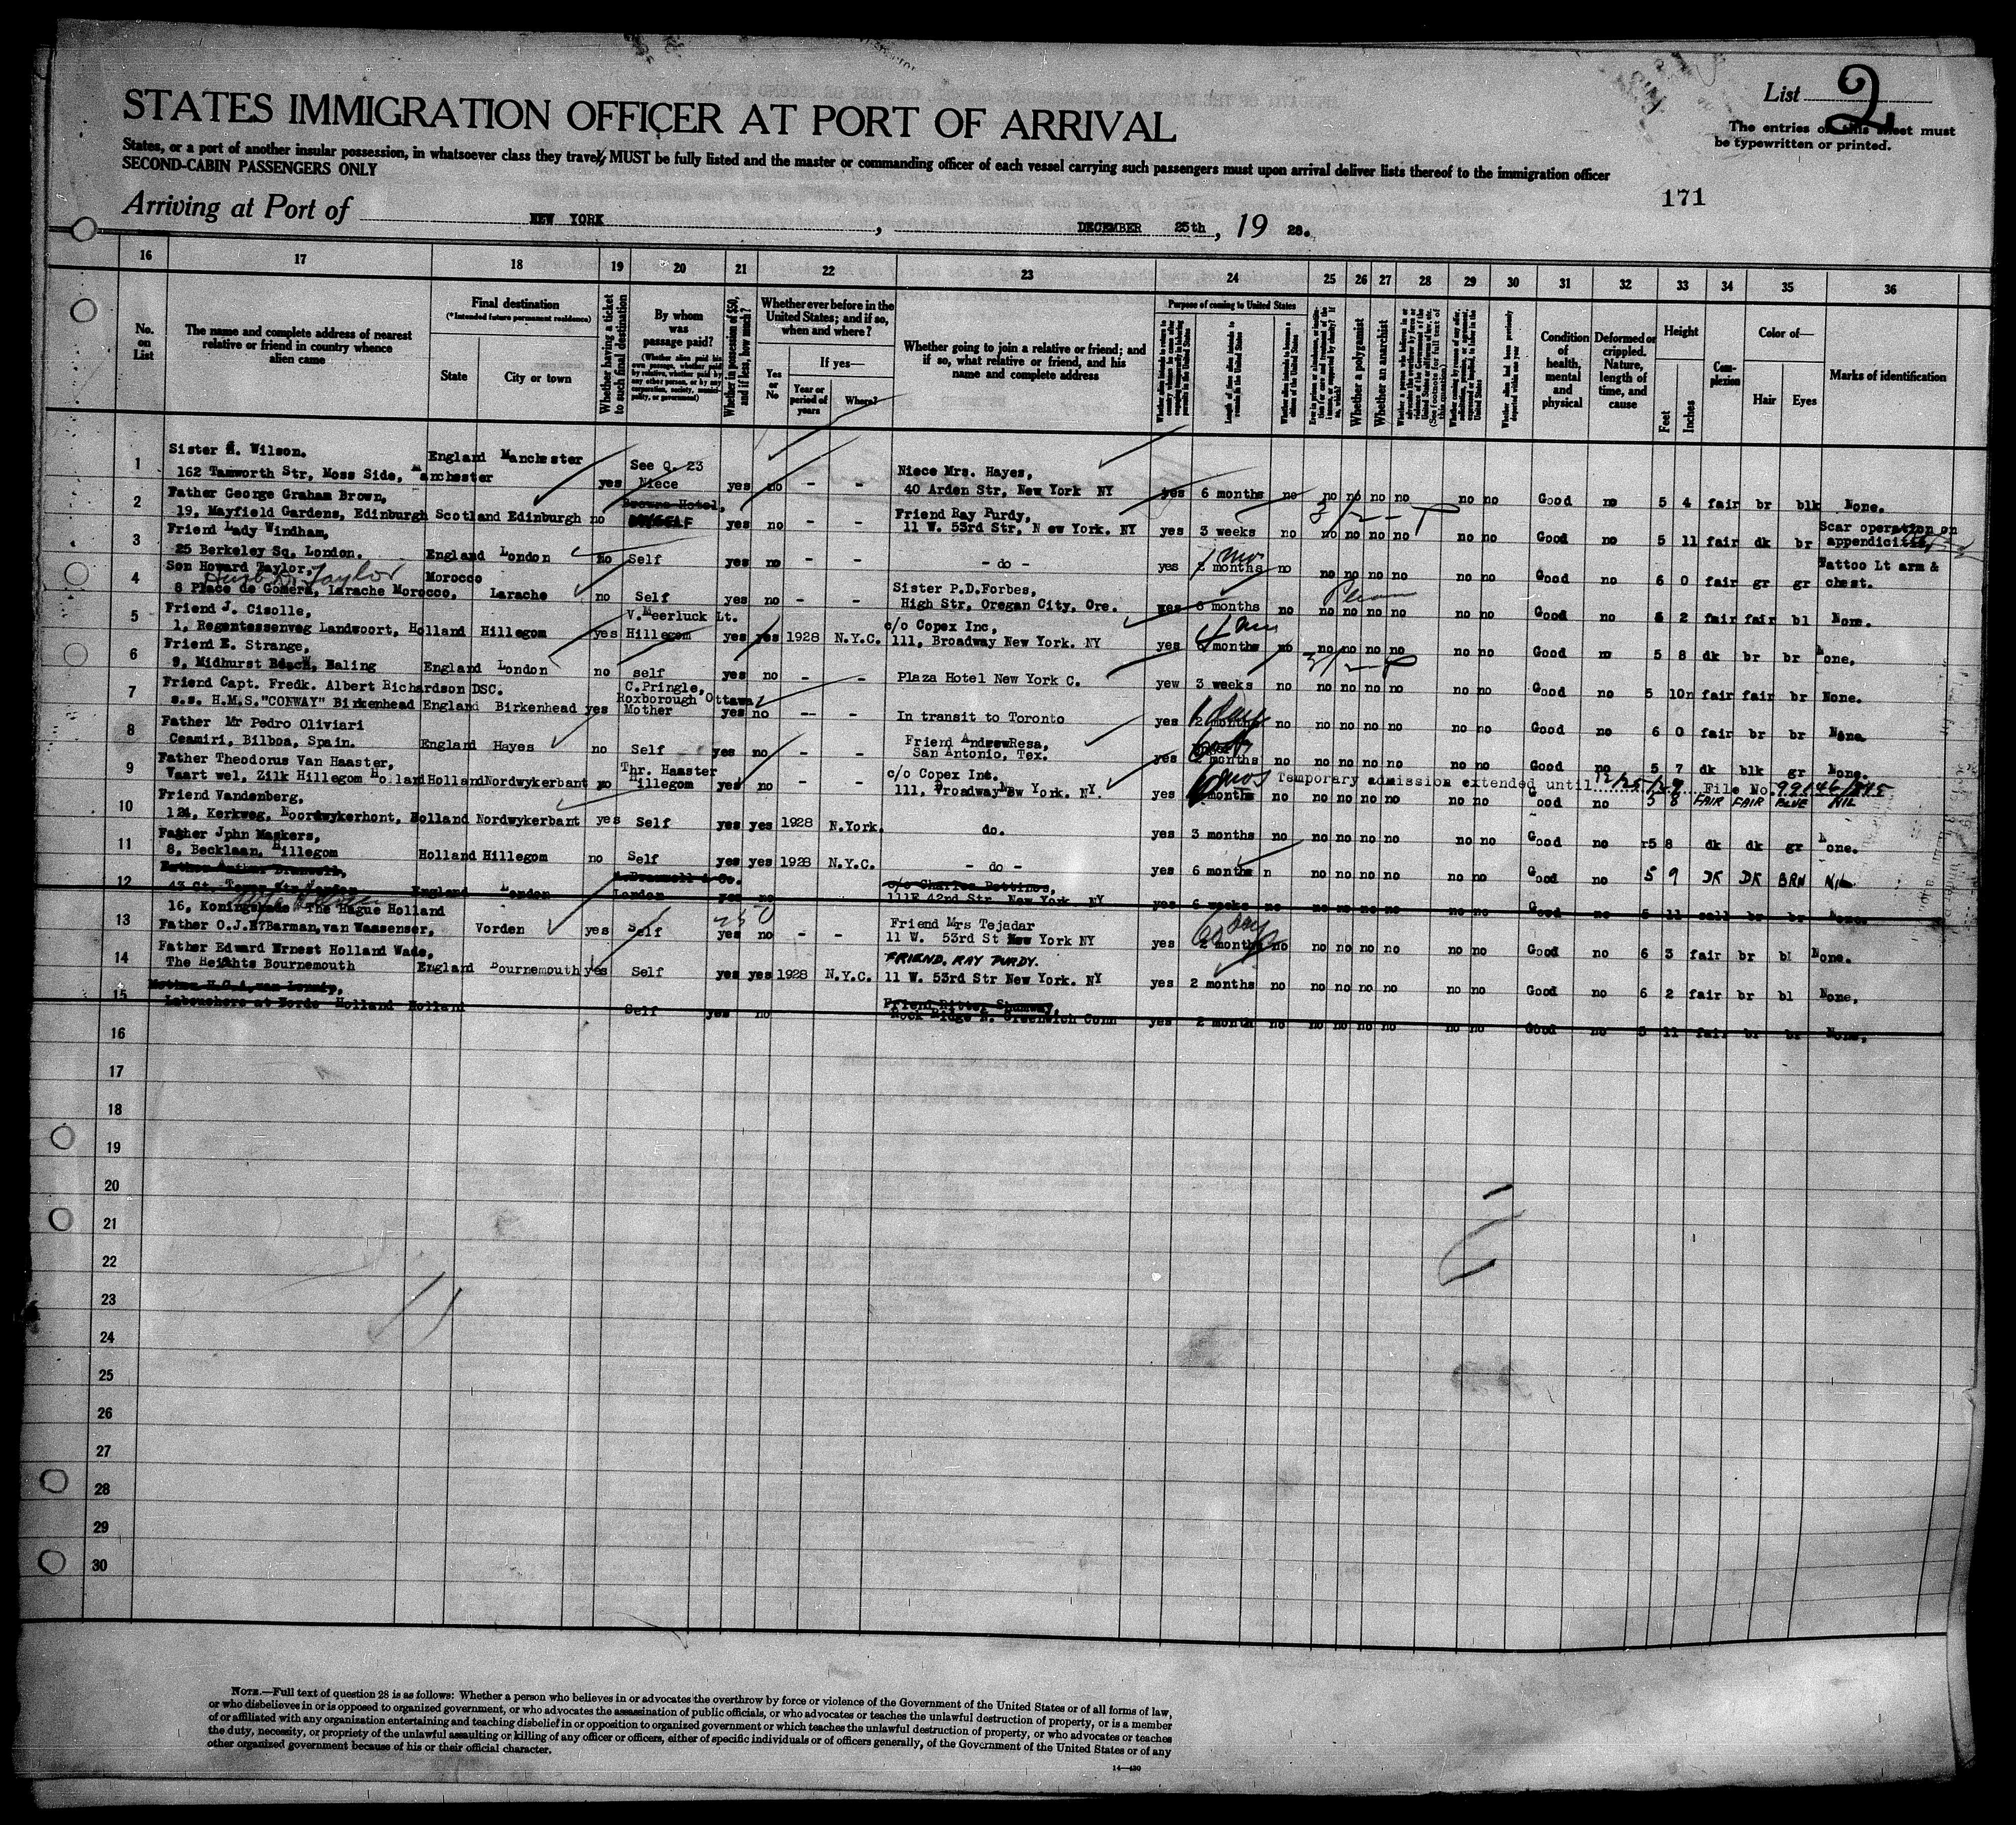 List 2
STATES IMMIGRATION OFFICER AT PORT OF ARRIVAL
The entries of this sheet must
be typewritten or printed.
States, or a port of another insular possession, in whatsoever class they travel, MUST be fully listed and the master or commanding officer of each vessel carrying such passengers must upon arrival deliver lists thereof to the immigration officer
SECOND-CABIN PASSENGERS ONLY
171
Arriving at Port of NEW YORK, DECEMBER 25th, 19 28.
16 17 18 19 20 21 22 23 24 25 26 27 28 29 30 31 32 33 34 35 36
No. on List
The name and complete address of nearest relative or friend in country whence alien came
Final destination
(*Intended future permanent residence)
State
City or town
Whether having a ticket to such final destination
By whom was passage paid?
(Whether alien paid his own passage, whether paid by relative, whether paid by any other person, or by any corporation, society, municipality, or government)
Whether in possession of $50, and if less, how much?
Whether ever before in the United States; and if so, when and where?
Yes or No
If yes—
Year or period of years
Where?
Whether going to join a relative or friend; and if so, what relative or friend, and his name and complete address
Purpose of coming to United States
Length of time alien intends to remain in the United States
Whether alien intends to become a citizen of the United States
Whether a polygamist
Whether an anarchist
Condition of health, mental and physical
Deformed or crippled. Nature, length of time, and cause
Height
Feet
Inches
Complexion
Color of—
Hair
Eyes
Marks of identification
1 Sister H. Wilson.
162 Tamworth Str, Moss Side, Manchester England Manchester yes See Q. 23 Niece yes no - - Niece Mrs. Hayes, 40 Arden Str, New York NY yes 6 months no no no no no no no Good no 5 4 fair br blk None.
2 Father George Graham Brown,
19, Mayfield Gardens, Edinburgh Scotland Edinburgh no yes no - - Friend Ray Purdy, 11 W. 53rd Str, New York. NY yes 3 weeks no no no no no no no Good no 5 11 fair dk br Scar operation on appendicitis,
3 Friend Lady Windham,
25 Berkeley Sq. London. England London no Self yes no - - - do - yes 2 months no no no no no no no Good no 6 0 fair gr gr Tattoo Lt arm & chest.
4 Son Howard Taylor.
8 Place de Gomera, Larache Morocco. Morocco Larache no Self yes no - - Sister P.D.Forbes, High Str, Oregan City, Ore. yes 6 months no no no no no no no Good no 6 2 fair fair bl None.
5 Friend J. Cisolle,
1, Regentessenweg Landwoort, Holland Hillegom yes V.Meerluck Lt. Hillegom yes yes 1928 N.Y.C. c/o Copex Inc, 111, Broadway New York. NY yes 6 months no no no no no no no Good no 5 8 dk br br None,
6 Friend E. Strange,
9, Midhurst Ealing England London no self yes no - - Plaza Hotel New York C. yew 3 weeks no no no no no no no Good no 5 10 fair fair br None.
7 Friend Capt. Fredk. Albert Richardson DSC.
s.s. H.M.S."CONWAY" Birkenhead England Birkenhead yes C.Pringle, Roxborough Ottawa Mother yes no -- - In transit to Toronto yes 2 months no no no no no no no Good no 6 0 fair br br None
8 Father Mr Pedro Oliviari
Ceamiri, Bilboa, Spain. England Hayes no Self yes no - - Friend AndrewResa, San Antonio, Tex. yes 2 months no no no no no no no Good no 5 7 dk blk gr None.
9 Father Theodorus Van Haaster,
Vaart wel, Zilk Hillegom Holland Holland Nordwykerbant no Thr. Haaster Hillegom yes no - - c/o Copex Int. 111, Broadway New York. NY. yes months no no no no no no no Good no 5 8 FAIR FAIR BLUE NIL
Temporary admission extended until 12/25/29 File No. 99146/845
10 Friend Vandenberg,
124, Kerkweg, Noordwykerhont, Holland Nordwykerbant yes Self yes yes 1928 N.York. do. yes 3 months no no no no no no no Good no 5 8 dk dk gr None.
11 Father Jphn Maskers,
8, Becklaan, Hillegom Holland Hillegom no Self yes yes 1928 N.Y.C. - do - yes 6 months n no no no no no no Good no 5 9 DK DK BRN NIL
12 England London London yes no c/o Charles Bettinos, 111E 42nd Str. New York. NY yes 6 weeks no no no no no no no Good no 5 11 br br None.
13 16, Koningskade The Hague Holland
Father O.J.E.Barman, van Waasenser, Vorden yes Self 250 yes no - - Friend Mrs Tejadar 11 W. 53rd St New York NY yes 60 days 2 months no no no no no no no Good no 6 3 fair br bl None.
14 Father Edward Ernest Holland Wade,
The Heights Bournemouth England Bournemouth yes Self yes yes 1928 N.Y.C. FRIEND. RAY PURDY. 11 W. 53rd Str New York. NY yes 2 months no no no no no no no Good no 6 2 fair br bl None,
15 Labouchere at Holland Holland Self yes no Friend Ritter Shumway, Rock Ridge N. Greenwich Conn yes 2 month no no no no no no no Good no 5 11 fair br br None,
16
17
18
19
20
21
22
23
24
25
26
27
28
29
30
NOTE.—Full text of question 28 is as follows: Whether a person who believes in or advocates the overthrow by force or violence of the Government of the United States or of all forms of law,
or who disbelieves in or is opposed to organized government, or who advocates the assassination of public officials, or who advocates or teaches the unlawful destruction of property, or is a member
of or affiliated with any organization entertaining and teaching disbelief in or opposition to organized government or which teaches the unlawful destruction of property, or who advocates or teaches
the duty, necessity, or propriety of the unlawful assaulting or killing of any officer or officers, either of specific individuals or of officers generally, of the Government of the United States or of any
other organized government because of his or their official character.
14—430